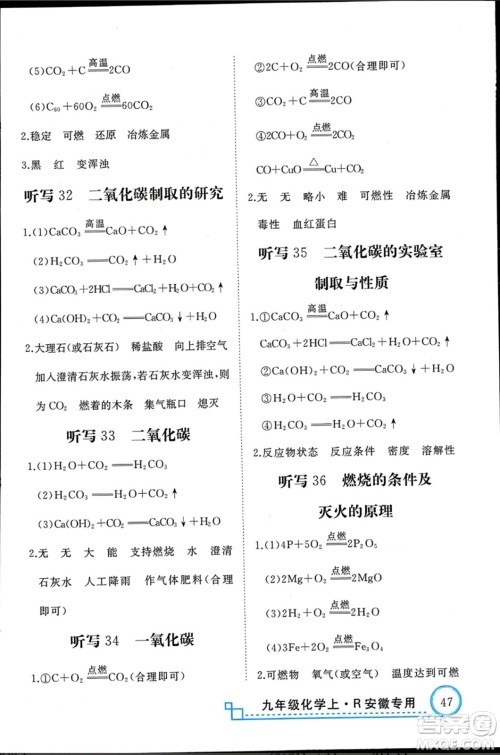 (5)CO₂+C $\xlongequal{高温}$ 2CO
(6)C₆₀+60O₂ $\xlongequal{点燃}$ 60CO₂
2.稳定 可燃 还原 冶炼金属
3.黑 红 变浑浊
听写 32 二氧化碳制取的研究
1.(1)CaCO₃ $\xlongequal{高温}$ CaO+CO₂↑
(2)H₂CO₃══H₂O+CO₂↑
(3)CaCO₃+2HCl══CaCl₂+H₂O+CO₂↑
(4)Ca(OH)₂+CO₂══CaCO₃↓+H₂O
2.大理石(或石灰石) 稀盐酸 向上排空气
加入澄清石灰水振荡,若石灰水变浑浊,则
为 CO₂ 燃着的木条 集气瓶口 熄灭
听写 33 二氧化碳
1.(1)H₂O+CO₂══H₂CO₃
(2)H₂CO₃══H₂O+CO₂↑
(3)Ca(OH)₂+CO₂══CaCO₃↓+H₂O
2.无 无 大 能 支持燃烧 水 澄清
石灰水 人工降雨 作气体肥料(合理
即可)
听写 34 一氧化碳
1.①C+O₂ $\xlongequal{点燃}$ CO₂(合理即可)
②2C+O₂ $\xlongequal{点燃}$ 2CO(合理即可)
③CO₂+C $\xlongequal{高温}$ 2CO
④2CO+O₂ $\xlongequal{点燃}$ 2CO₂
CO+CuO $\xlongequal{△}$ Cu+CO₂
2.无 无 略小 难 可燃性 冶炼金属
毒性 血红蛋白
听写 35 二氧化碳的实验室
制取与性质
1.①CaCO₃ $\xlongequal{高温}$ CaO+CO₂↑
CaCO₃+2HCl══CaCl₂+H₂O+CO₂↑
②Ca(OH)₂+CO₂══CaCO₃↓+H₂O
③H₂O+CO₂══H₂CO₃
④H₂CO₃══H₂O+CO₂↑
2.反应物状态 反应条件 密度 溶解性
听写 36 燃烧的条件及
灭火的原理
1.(1)4P+5O₂ $\xlongequal{点燃}$ 2P₂O₅
(2)2Mg+O₂ $\xlongequal{点燃}$ 2MgO
(3)2H₂+O₂ $\xlongequal{点燃}$ 2H₂O
(4)3Fe+2O₂ $\xlongequal{点燃}$ Fe₃O₄
2.可燃物 氧气(或空气) 温度达到可燃
九年级化学上·R 安徽专用
47